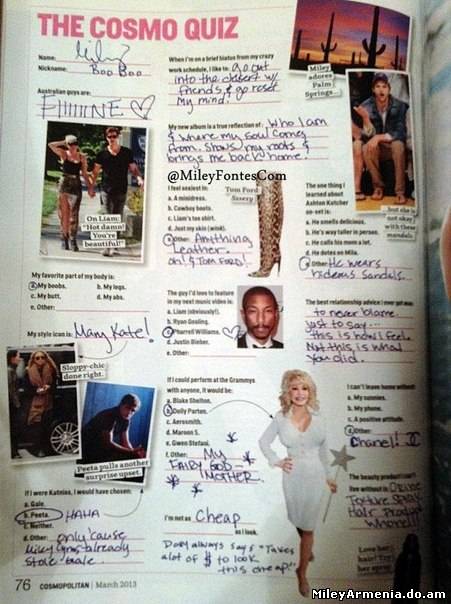 THE COSMO QUIZ
Name: Miley
Nickname: Boo Boo
Australian guys are:
FIIIIINE ♡
On Liam:
"Hot damn!
You're
beautiful!"
My favorite part of my body is:
a. My boobs.
b. My legs.
c. My butt.
d. My abs.
e. Other:
My style icon is: Mary Kate!
Sloppy-chic
done right.
Peeta pulls another
surprise upset.
If I were Katniss, I would have chosen:
a. Gale.
b. Peeta. HAHA
c. Neither.
d. Other: only 'cause
Miley Cyrus already
stole Gale.
When I'm on a brief hiatus from my crazy
work schedule, I like to: Go out
into the desert w/
friends & go reset
my mind!
My new album is a true reflection of: Who I am
& where my soul comes
from. Shows my roots &
brings me back home.
@MileyFontesCom
I feel sexiest in:
a. A minidress.
b. Cowboy boots.
c. Liam's tee shirt.
d. Just my skin (wink).
e. Other: Anything
Leather.
oh! & Tom Ford!
Tom Ford
Sassy
The guy I'd love to feature
in my next music video is:
a. Liam (obviously!).
b. Ryan Gosling.
c. Pharrell Williams. ♡
d. Justin Bieber.
e. Other:
If I could perform at the Grammys
with anyone, it would be:
a. Blake Shelton.
b. Dolly Parton.
c. Aerosmith.
d. Maroon 5.
e. Gwen Stefani.
f. Other: My
FAIRY GOD-
MOTHER.
I'm not as Cheap
as I look.
Dolly always says "Takes
alot of $ to look
this cheap!"
Miley
adores
Palm
Springs...
The one thing I
learned about
Ashton Kutcher
on-set is:
a. He smells delicious.
b. He's way taller in person.
c. He calls his mom a lot.
d. He dotes on Mila.
e. Other: He wears
hideous sandals...
...but she is
not okay
with these
mandals.
The best relationship advice I ever got was:
to never blame
just to say...
this is how I feel
Not this is what
you did.
I can't leave home without:
a. My sunnies.
b. My phone.
c. A positive attitude.
d. Other:
Chanel!
The beauty product I can't
live without is: Oribe
Texture Spray
Hair Product
Love her
hair! Try
her spray.
76 COSMOPOLITAN | March 2013
MileyArmenia.do.am